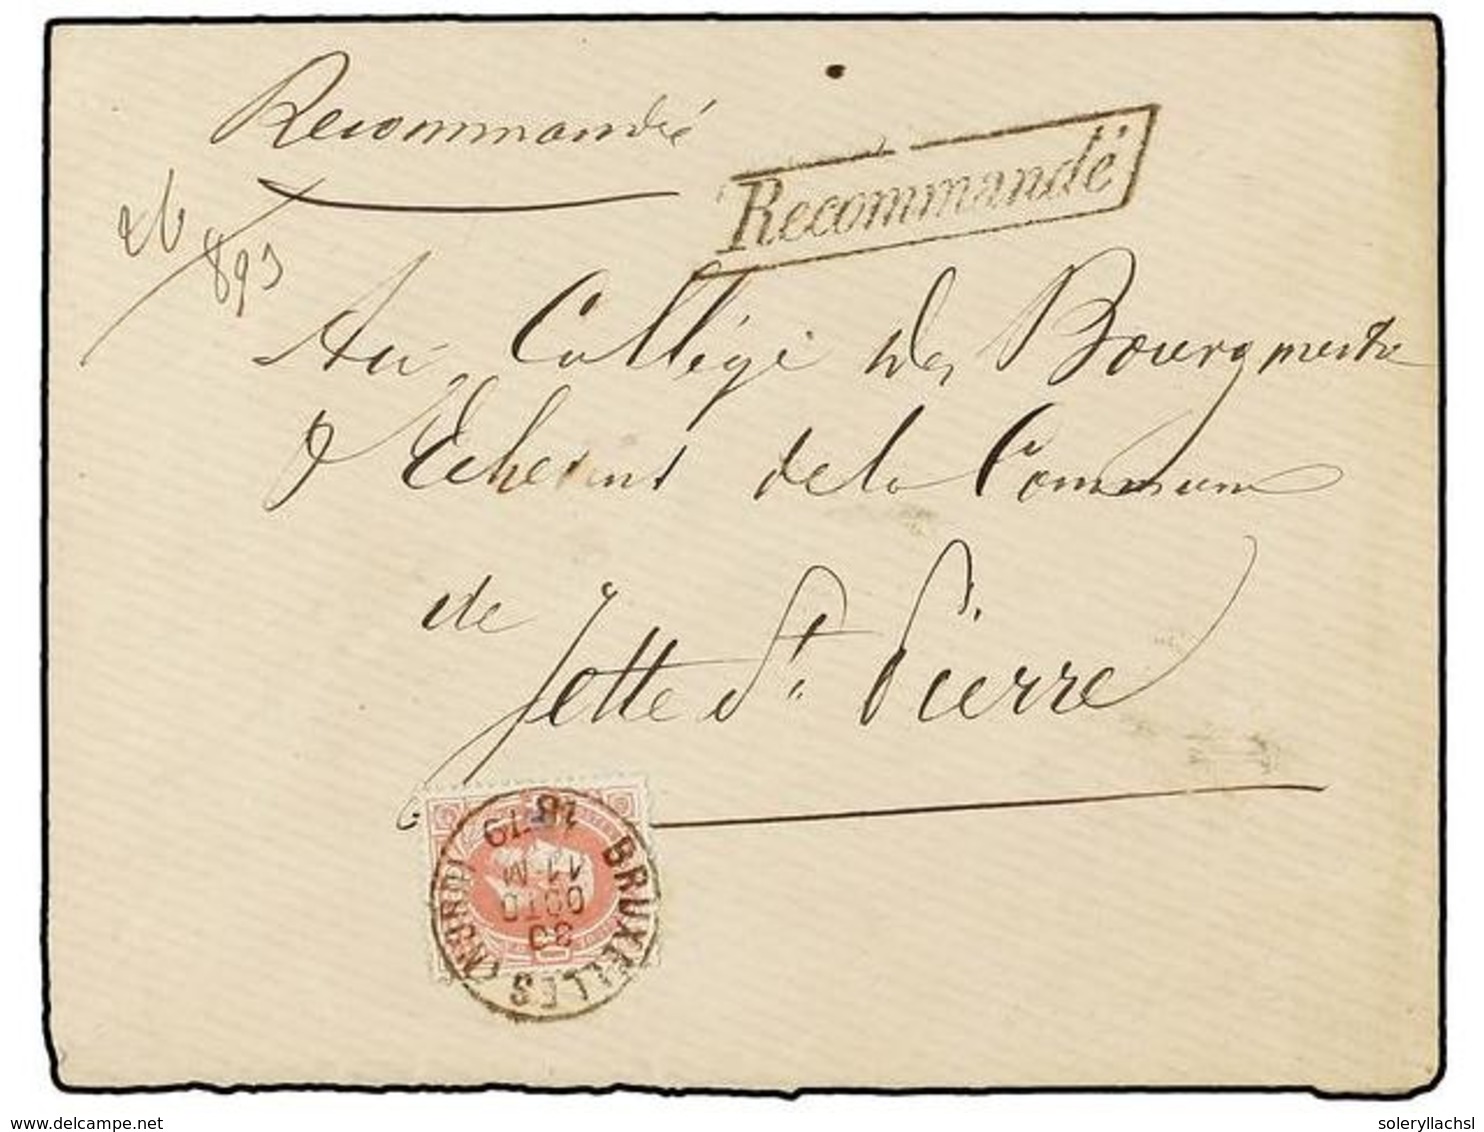 Recommandé
Recommandé
893
Au Collége des Bourgmestre
& Echevins de la Commune
de
Jette St. Pierre
BRUXELLES (NORD)
30
OCTO
11-M
1879
www.delcampe.net
soleryllachsl